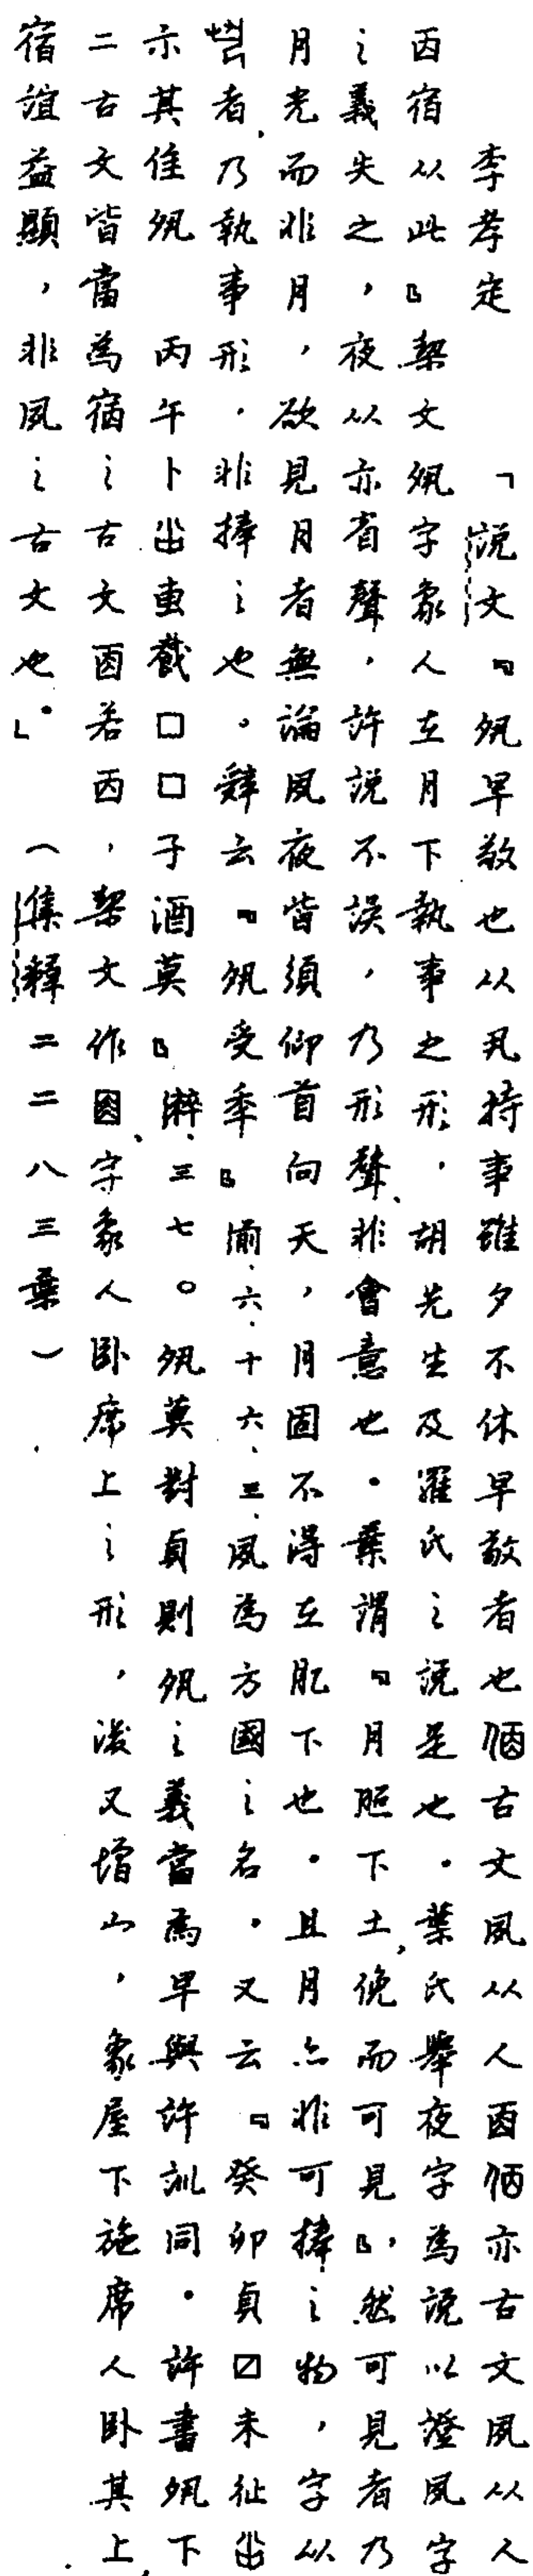 李孝定　「說文『夙早敬也从丮持事雖夕不休早敬者也𠈇古文夙从人㐁𠉦亦古文夙从人
㐁宿从此』栔文夙字象人在月下執事之形，胡先生及羅氏之說是也．葉氏舉夜字為說以證夙字
之義失之，夜从亦省聲，許說不誤，乃形聲、非會意也．葉謂『月照下土，俛而可見』，然可見者乃
月光而非月，欲見月者無論夙夜皆須仰首向天，月固不得在肘下也．且月亦非可捧之物，字从
者，乃執事形．非捧之也。辭云『夙受年』前．六．十六．三．夙為方國之名．又云『癸卯貞□未征
示其隹夙　丙午卜出䖵㦰□□子酒莫』瀞．三七。夙莫對貞則夙之義當為早與許訓同．許書夙下
二古文皆當為宿之古文㐁若西，栔文作　字象人臥席上之形，後又增宀，象屋下施席人臥其上．
宿誼益顯，非夙之古文也。」（集釋二二八三葉）．